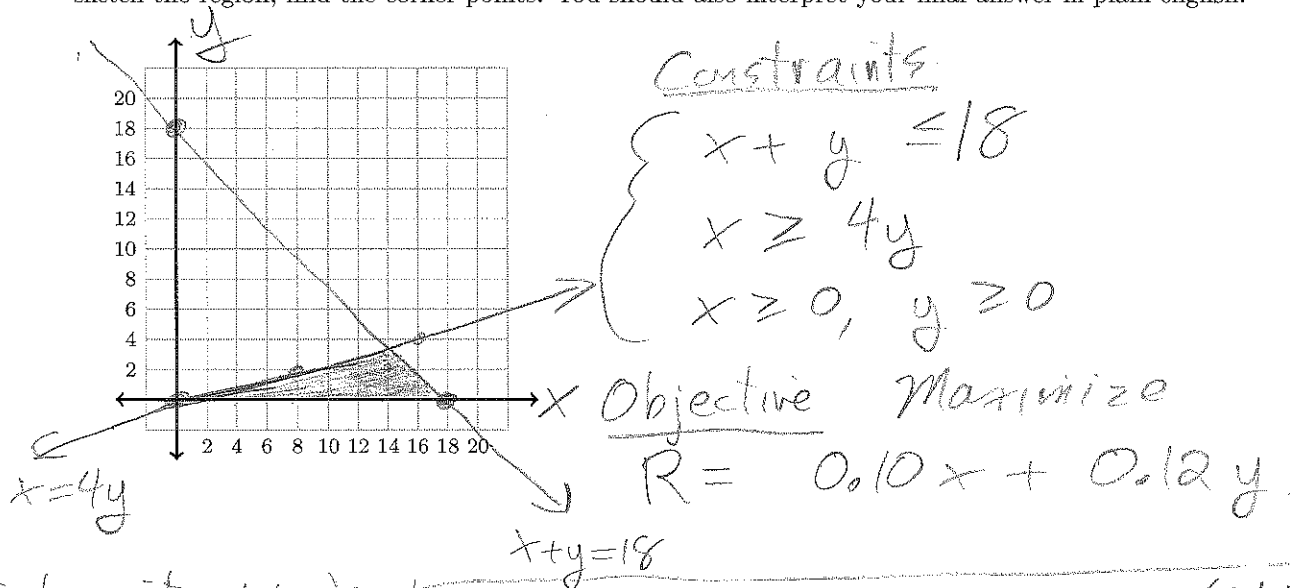 sketch the region, find the corner points. You should also interpret your final answer in plain english.
y
20
18
16
14
12
10
8
6
4
2
2 4 6 8 10 12 14 16 18 20
X
x=4y
x+y=18
Constraints
x + y ≤ 18
x ≥ 4y
x ≥ 0, y ≥ 0
Objective Maximize
R = 0.10x + 0.12y